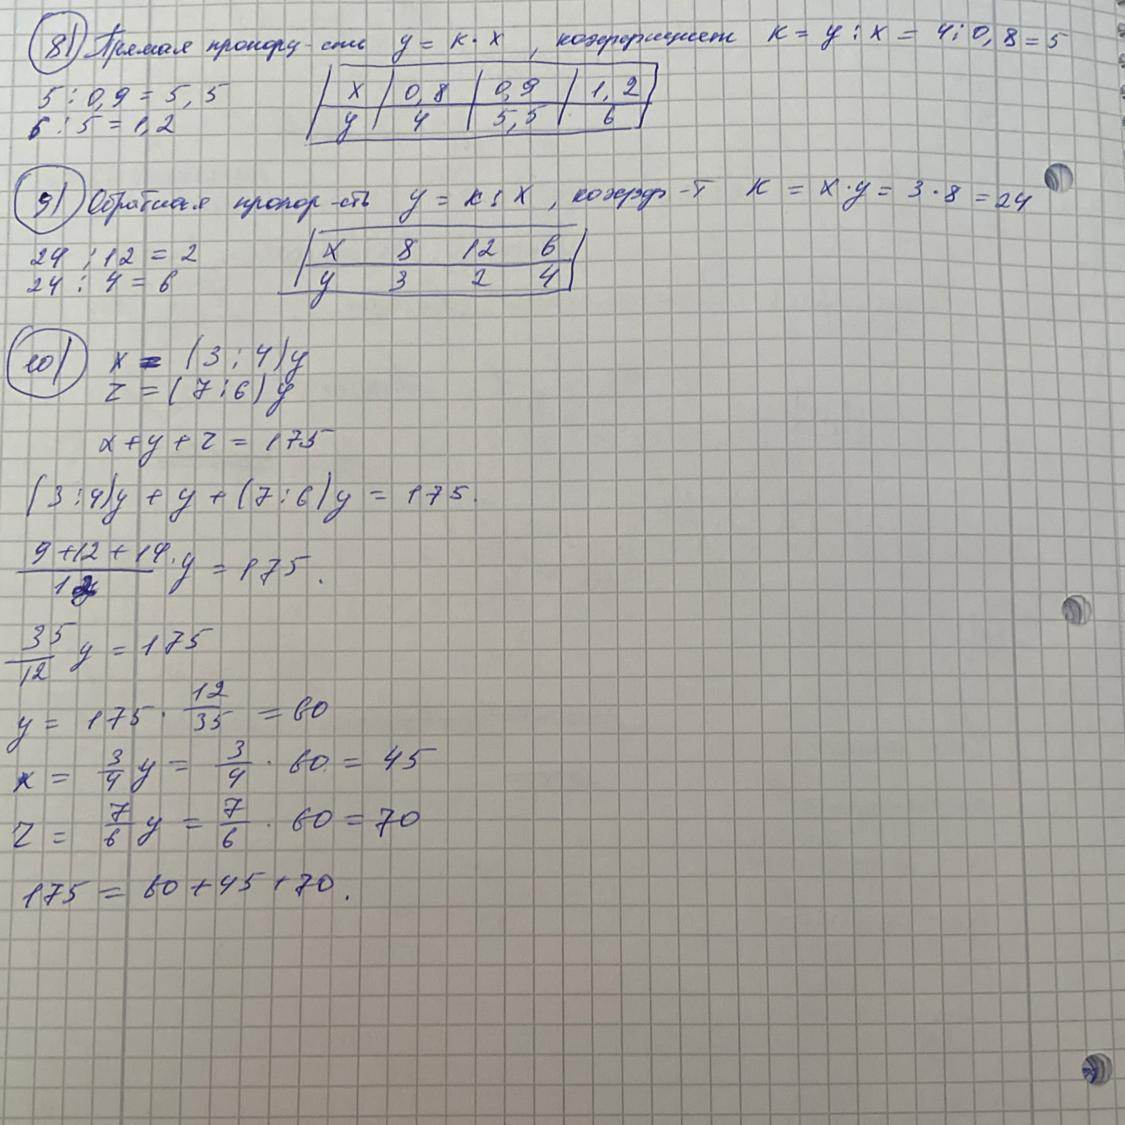 8) Прямая пропорц-сть y = к · x , коэффициент к = y : x = 4 : 0,8 = 5
5 : 0,9 = 5,5
6 : 5 = 1,2
x 0,8 0,9 1,2
y 4 5,5 6
9) Обратная пропор-сть y = к : x , коэфф-т к = x · y = 3 · 8 = 24
24 : 12 = 2
24 : 4 = 6
x 8 12 6
y 3 2 4
10) x = (3 : 4) y
z = (7 : 6) y
x + y + z = 175
(3 : 4) y + y + (7 : 6) y = 175.
9 + 12 + 14 · y = 175.
12
35
12 y = 175
y = 175 · 12/35 = 60
x = 3/4 y = 3/4 · 60 = 45
z = 7/6 y = 7/6 · 60 = 70
175 = 60 + 45 + 70.